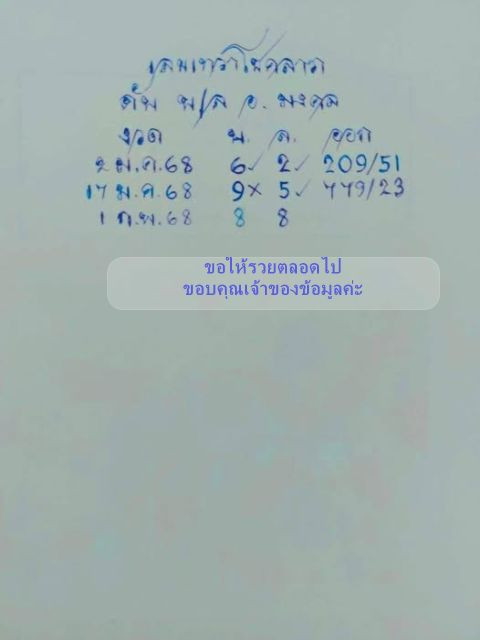 เลขเทวาโชคลาภ
ดับ บ/ล อ. มงคล
งวด บ. ล. ออก
2 ม.ค.68 6✓ 2✓ 209/51
17 ม.ค.68 9× 5✓ 779/23
1 ก.พ.68 8 8
ขอให้รวยตลอดไป
ขอบคุณเจ้าของข้อมูลค่ะ